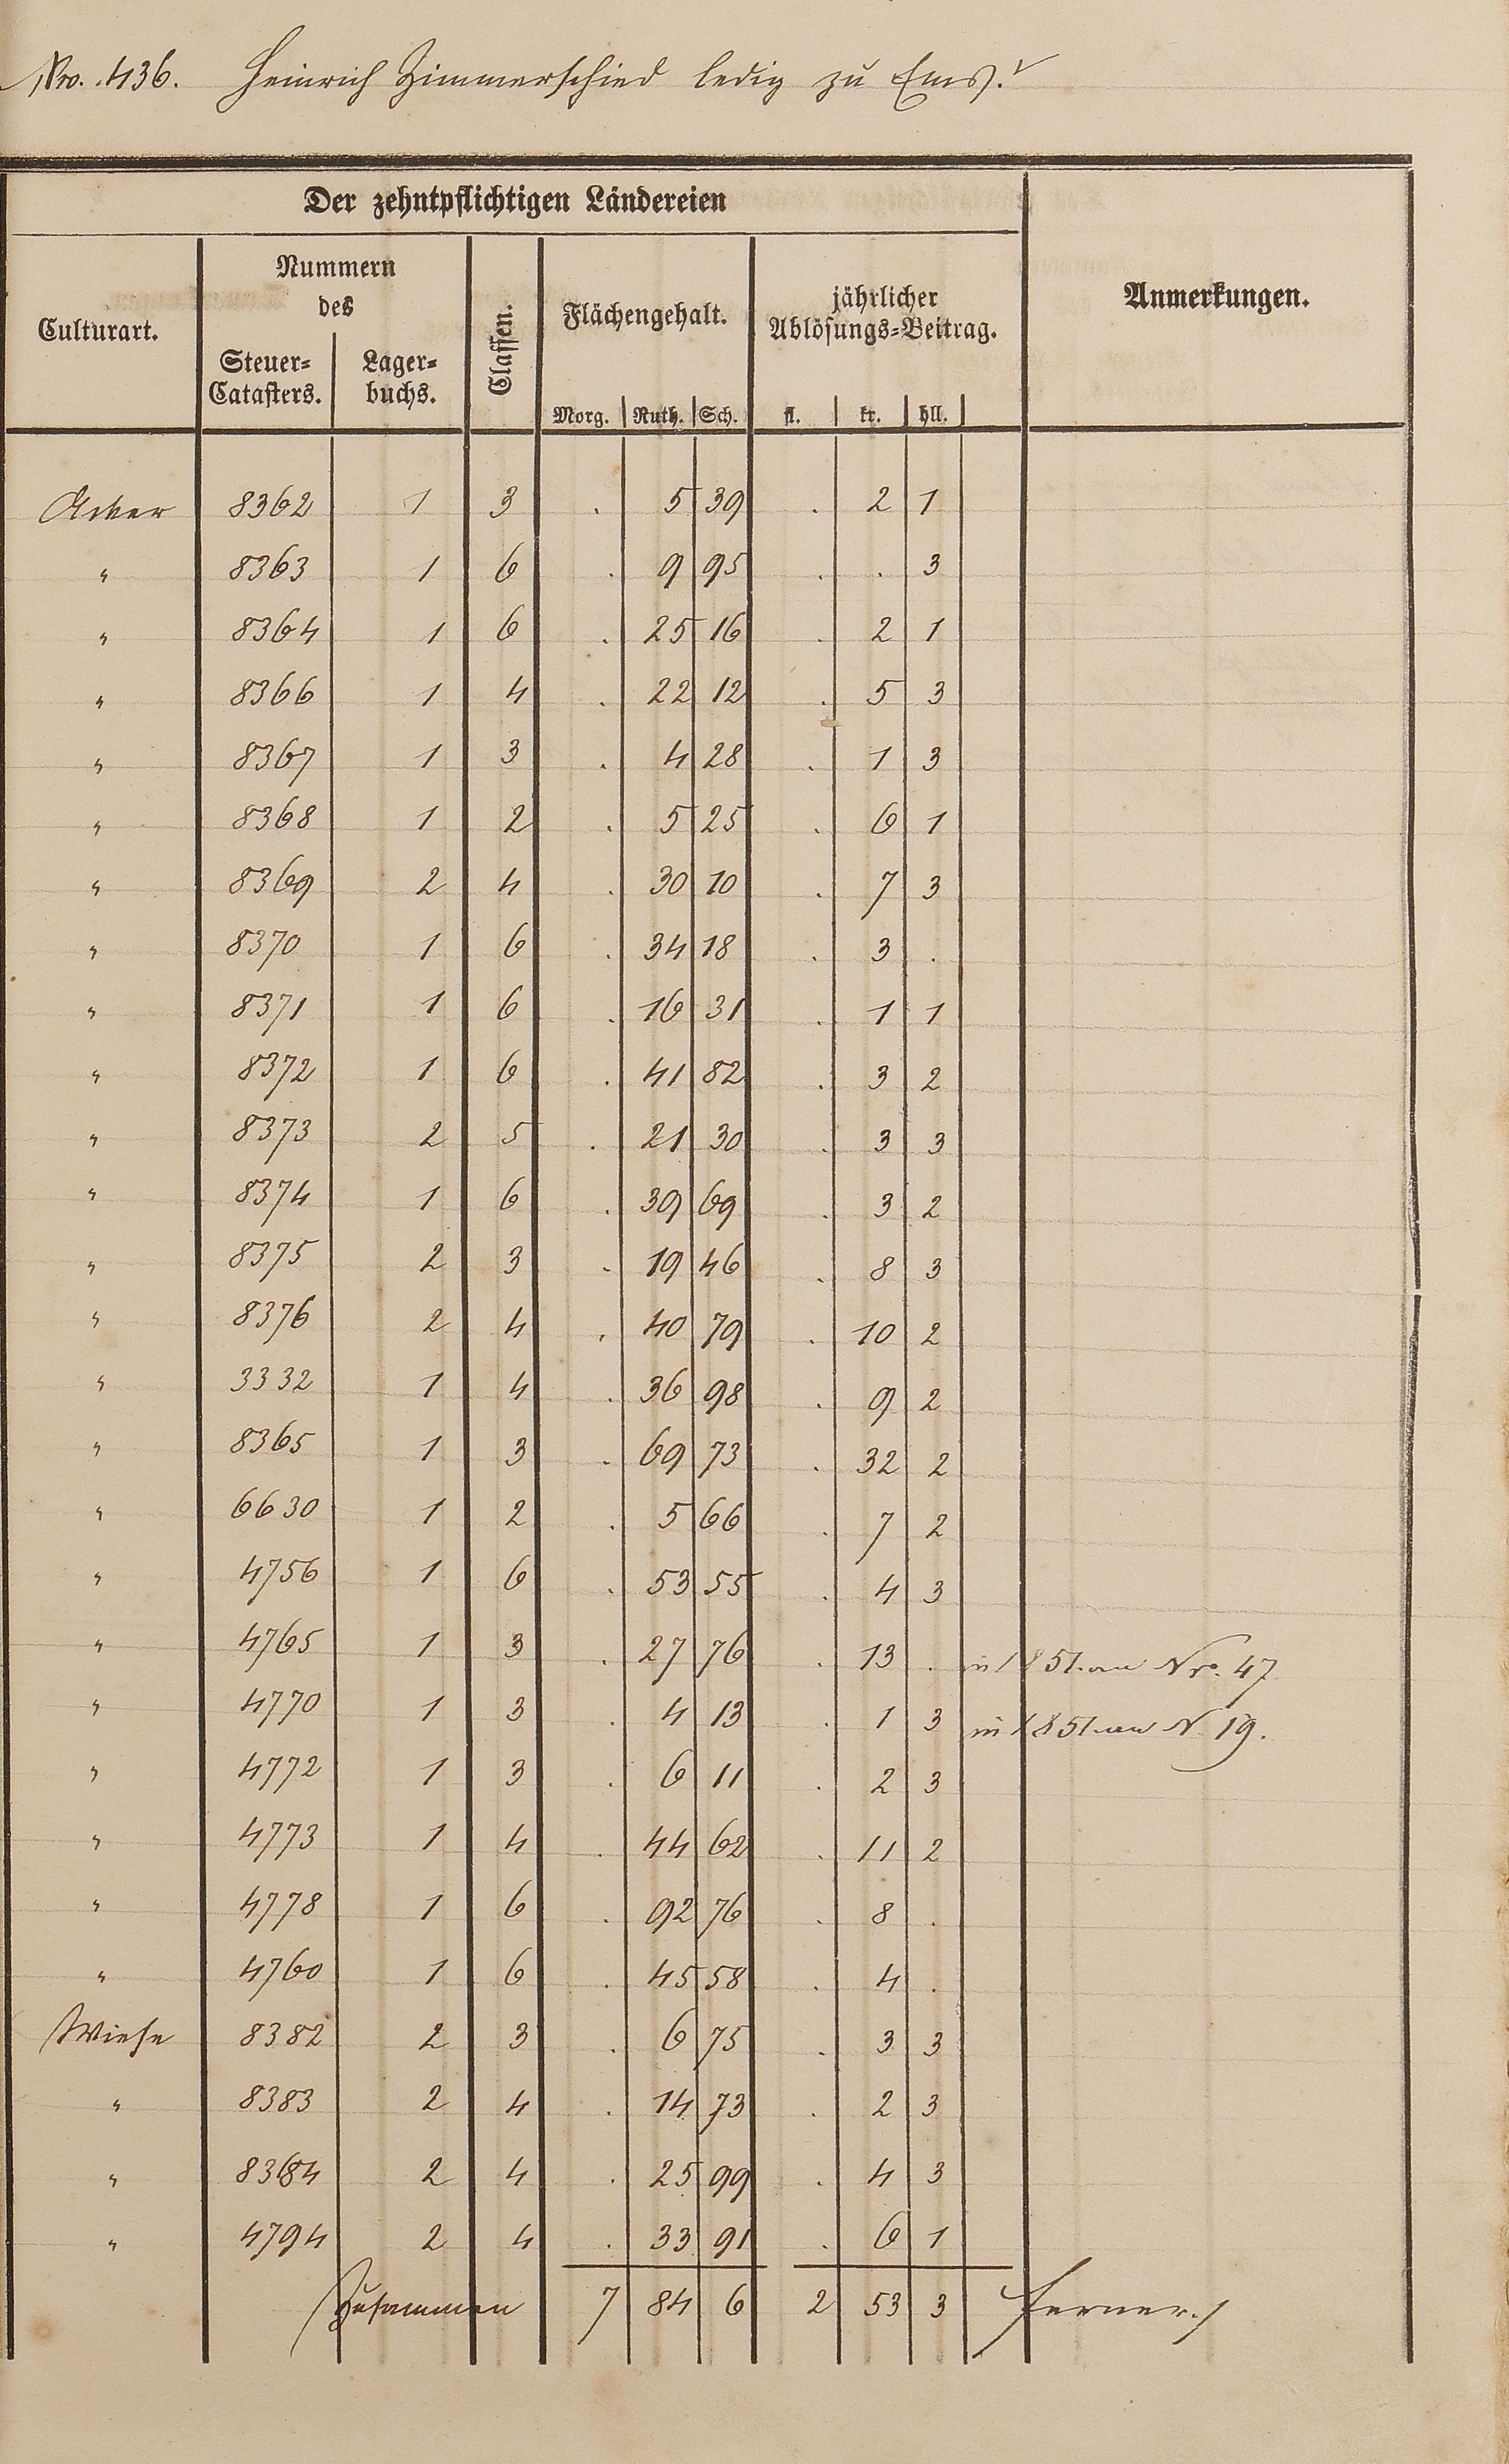 Nro. 436. Heinrich Zimmerschied ledig zu Ems.
Der zehntpflichtigen Ländereien
Culturart. Nummern des Classen. Flächengehalt. jährlicher Ablösungs=Beitrag. Anmerkungen.
Steuer=Catasters. Lager=buchs. Morg. Ruth. Sch. fl. kr. hll.
Acker 8362 1 3 . 5 39 . 2 1
" 8363 1 6 . 9 95 . . 3
" 8364 1 6 . 25 16 . 2 1
" 8366 1 4 . 22 12 . 5 3
" 8367 1 3 . 4 28 . 1 3
" 8368 1 2 . 5 25 . 6 1
" 8369 2 4 . 30 10 . 7 3
" 8370 1 6 . 34 18 . 3 .
" 8371 1 6 . 16 31 . 1 1
" 8372 1 6 . 41 82 . 3 2
" 8373 2 5 . 21 30 . 3 3
" 8374 1 6 . 39 69 . 3 2
" 8375 2 3 . 19 46 . 8 3
" 8376 2 4 . 40 79 . 10 2
" 3332 1 4 . 36 98 . 9 2
" 8365 1 3 . 69 73 . 32 2
" 6630 1 2 . 5 66 . 7 2
" 4756 1 6 . 53 55 . 4 3
" 4765 1 3 . 27 76 . 13 . in 1851 an Nro. 47
" 4770 1 3 . 4 13 . 1 3 in 1851 an N 19.
" 4772 1 3 . 6 11 . 2 3
" 4773 1 4 . 44 62 . 11 2
" 4778 1 6 . 92 76 . 8 .
" 4760 1 6 . 45 58 . 4 .
Wiese 8382 2 3 . 6 75 . 3 3
" 8383 2 4 . 14 73 . 2 3
" 8384 2 4 . 25 99 . 4 3
" 4794 2 4 . 33 91 . 6 1
Zusammen 7 84 6 2 53 3 ferner./